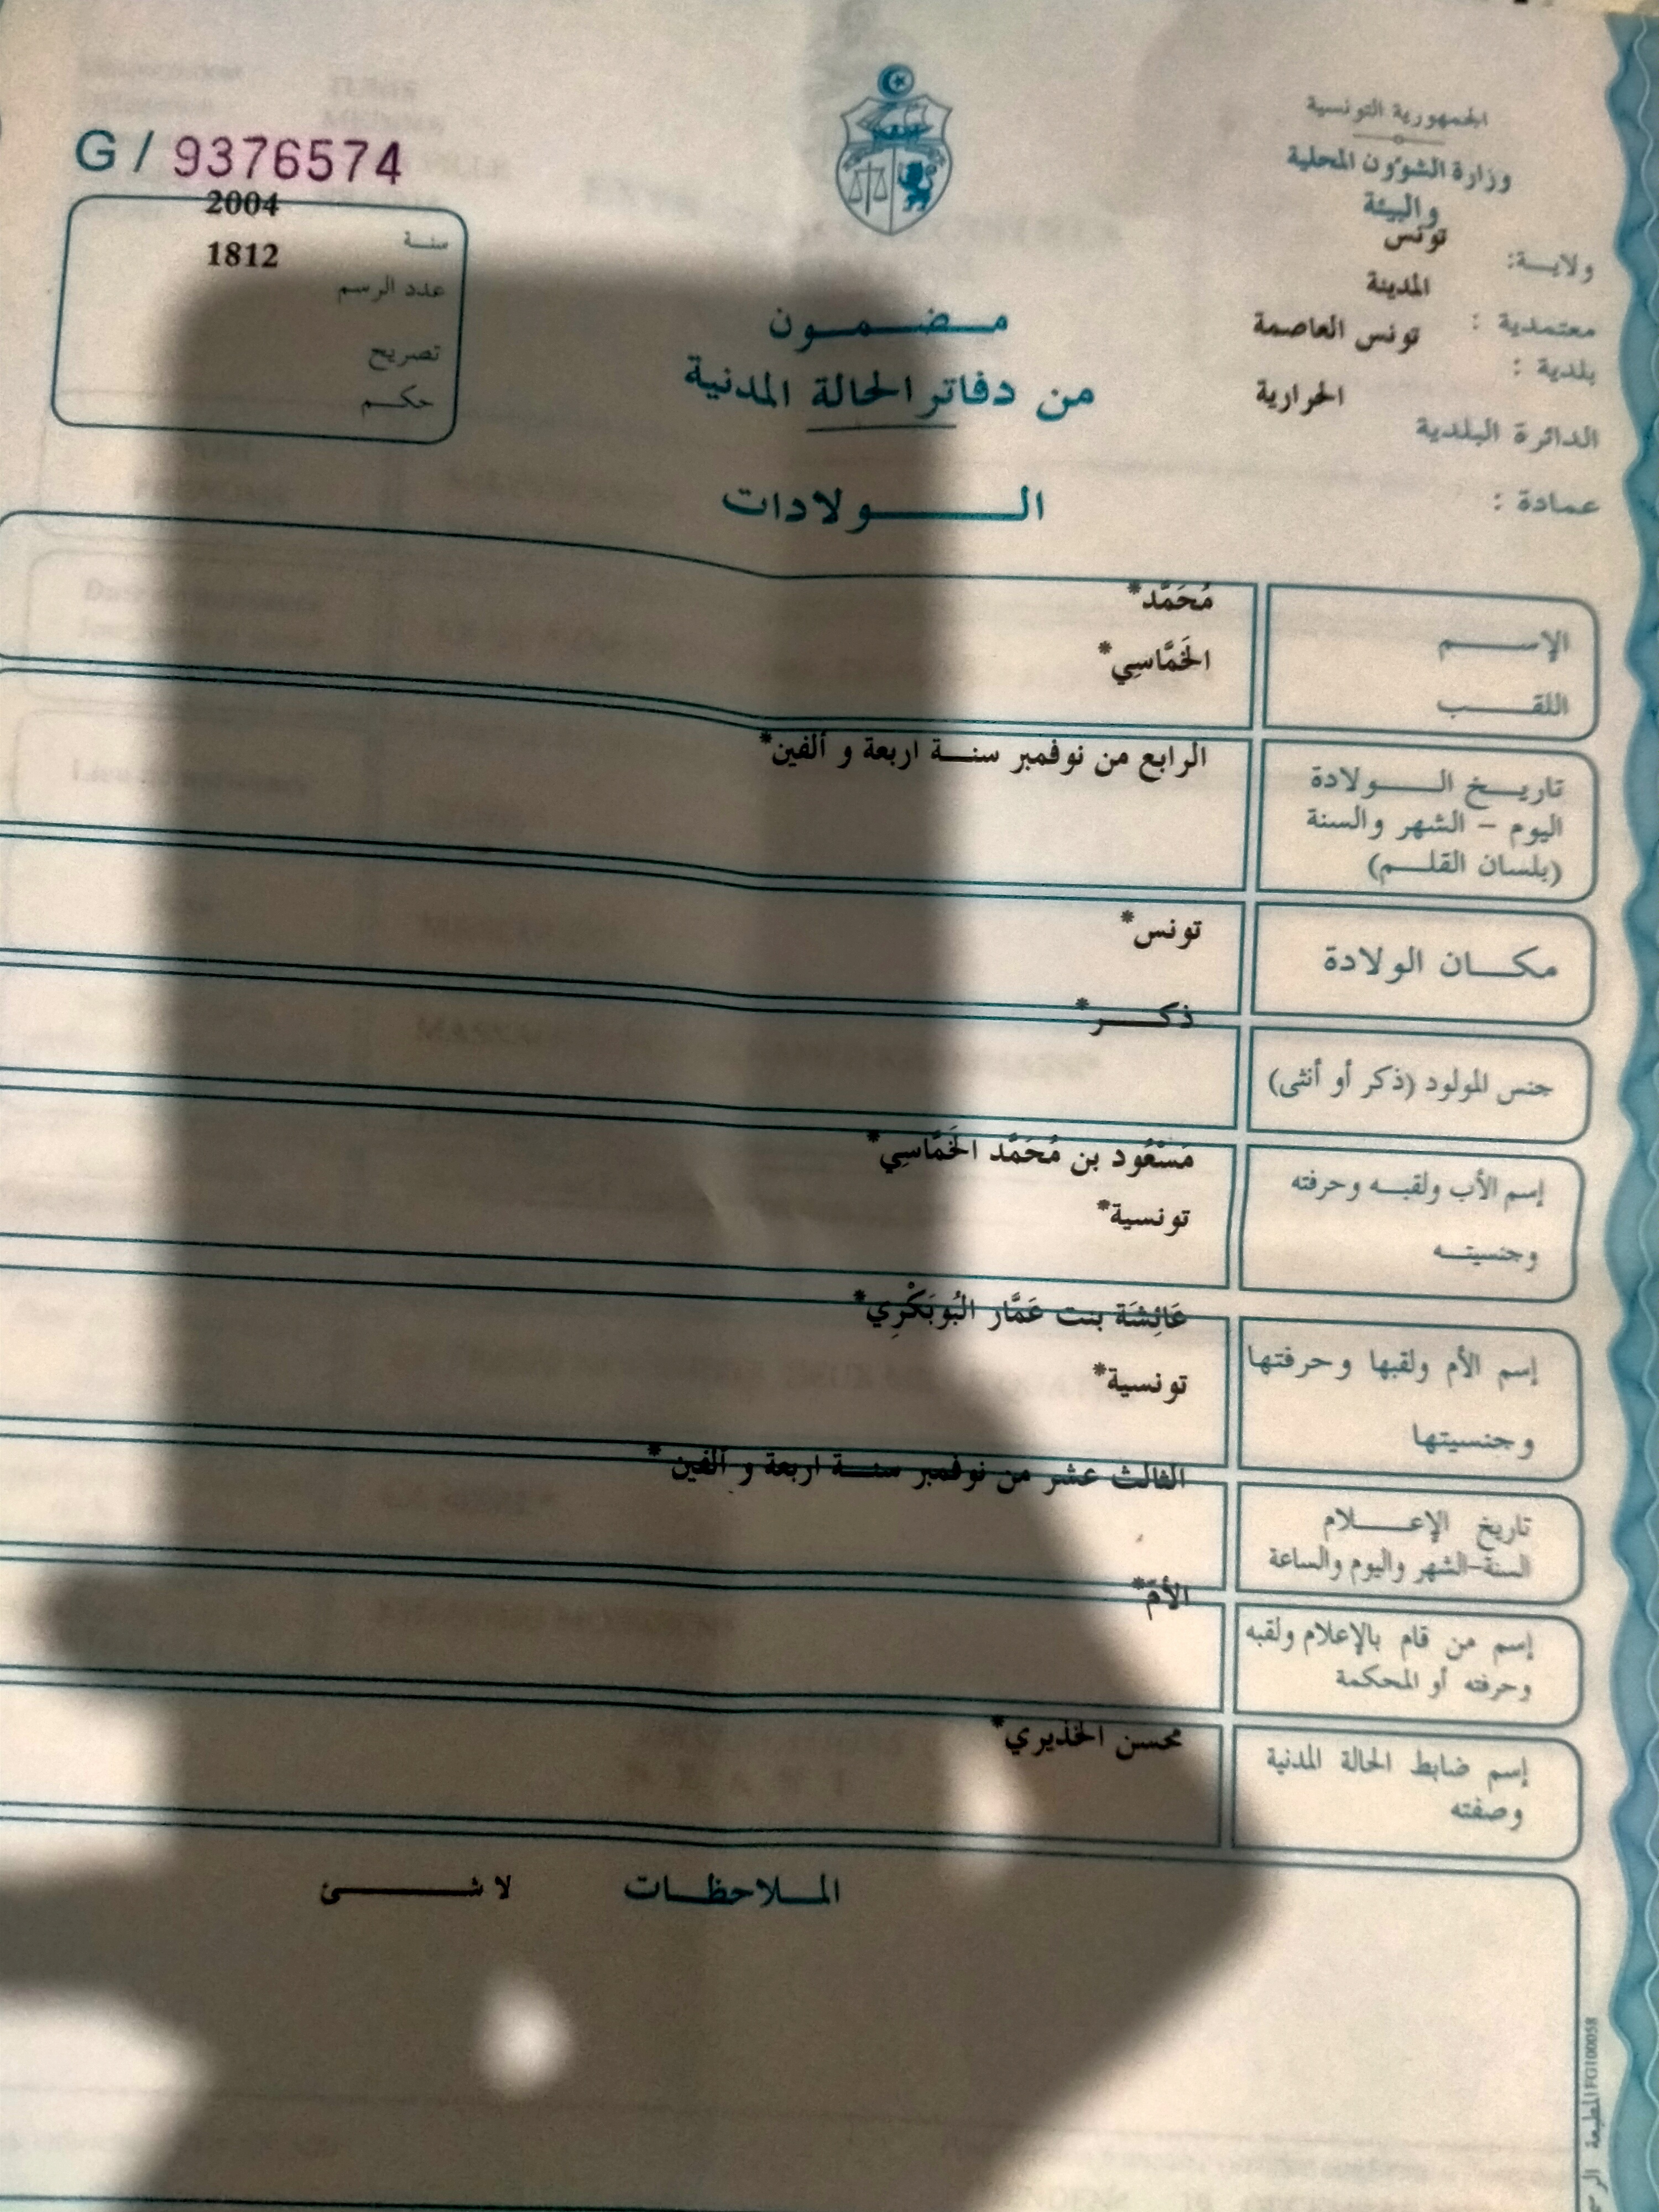 الجمهورية التونسية
وزارة الشؤون المحلية
والبيئة
ولاية: تونس
معتمدية : المدينة
بلدية : تونس العاصمة
الدائرة البلدية الحرارية
عمادة :
G / 9376574
سنة 2004
عدد الرسم 1812
تصريح
حكم
مضمون
من دفاتر الحالة المدنية
الولادات
الإسم مُحَمَّد*
اللقب الخَمَّاسِي*
تاريخ الولادة الرابع من نوفمبر سنة اربعة و ألفين*
اليوم – الشهر والسنة
(بلسان القلم)
مكان الولادة تونس*
جنس المولود (ذكر أو أنثى) ذكر*
إسم الأب ولقبه وحرفته مَسْعُود بن مُحَمَّد الخَمَّاسِي*
وجنسيته تونسية*
إسم الأم ولقبها وحرفتها عَائِشَة بنت عَمَّار البُوبَكْرِي*
وجنسيتها تونسية*
تاريخ الإعلام الثالث عشر من نوفمبر سنة اربعة و ألفين *
السنة-الشهر واليوم والساعة
إسم من قام بالإعلام ولقبه الأمّ*
وحرفته أو المحكمة
إسم ضابط الحالة المدنية محسن الخذيري*
وصفته
الملاحظات لا شئ
FG100058 المطبعة